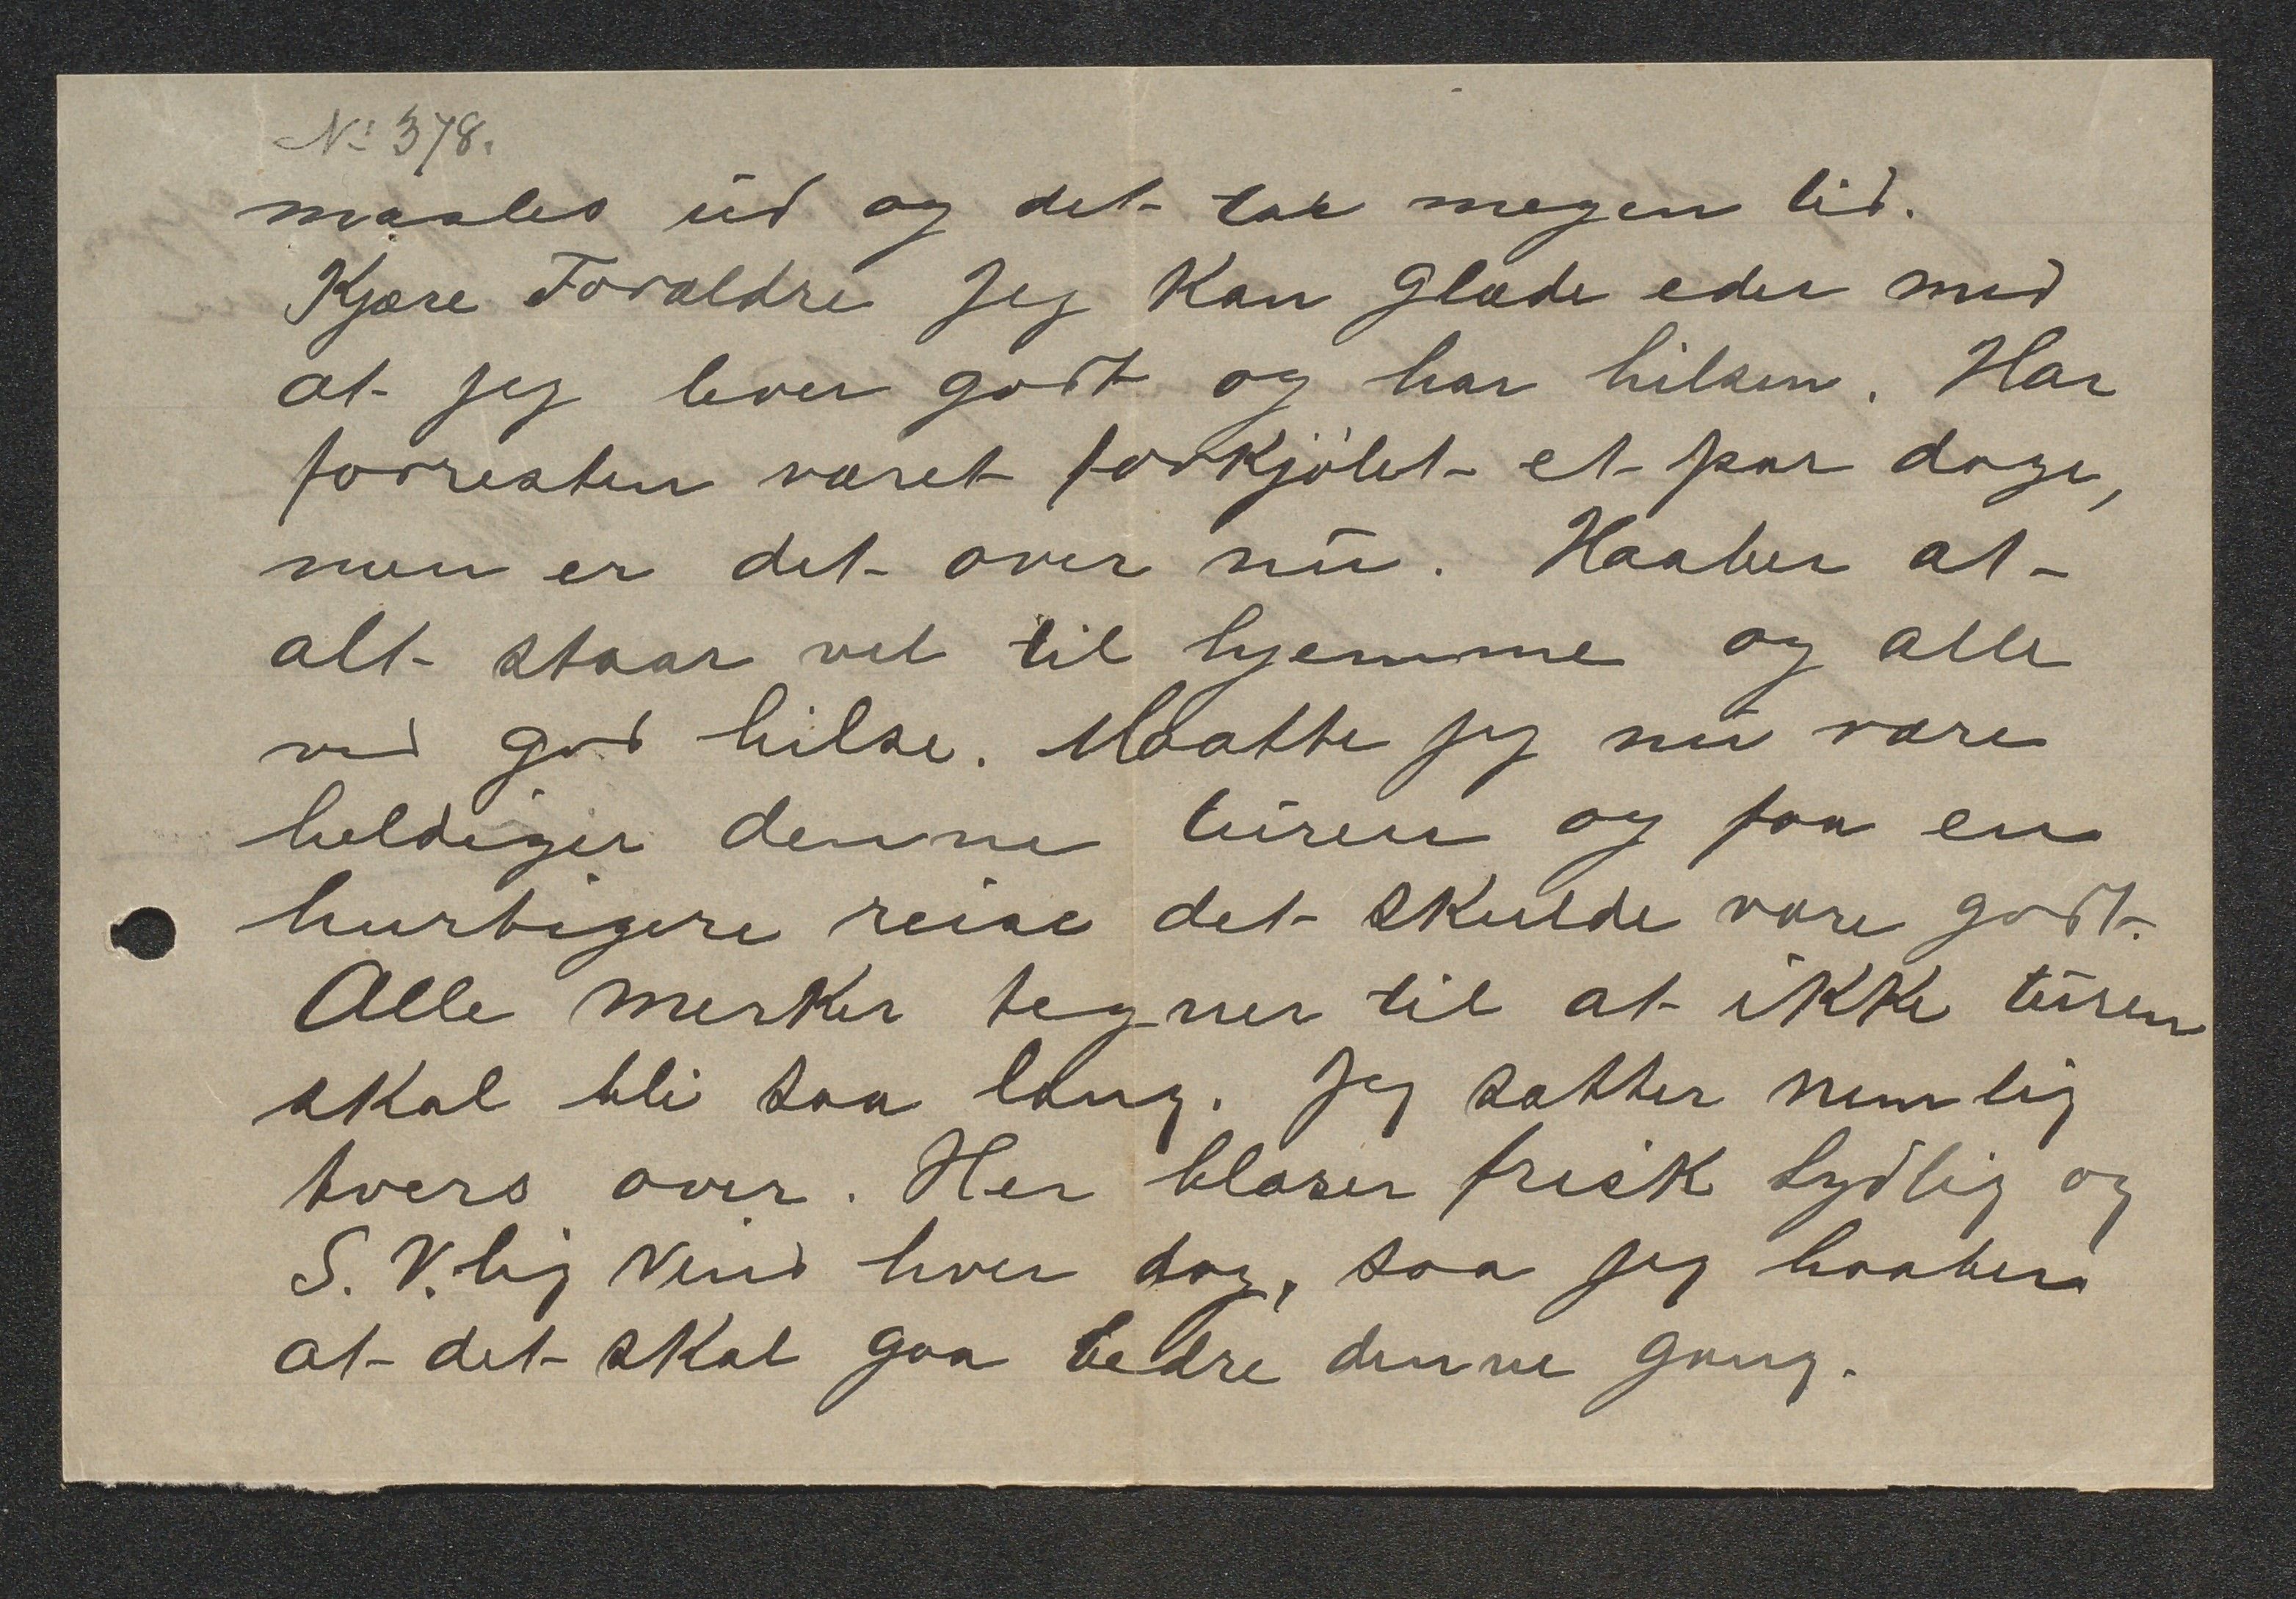 No 378.
maales ud og det tar megen tid.
Kjære Forældre Jeg Kan Glæde eder med
at jeg lever godt og har hilsen. Har
forresten været forkjølet et par dage,
men er det over nu. Haaber at
alt staar vel til hjemme og alle
ved god hilse. Maatte jeg nu være
heldiger denne turen og faa en
hurtigere reise det skulde være godt.
Alle merker tegner til at ikke turen
skal bli saa lang. Jeg sætter nemlig
tvers over. Her blæser frisk sydlig og
S. V. lig Vind hver dag, saa jeg haaber
at det skal gaa bedre denne gang.